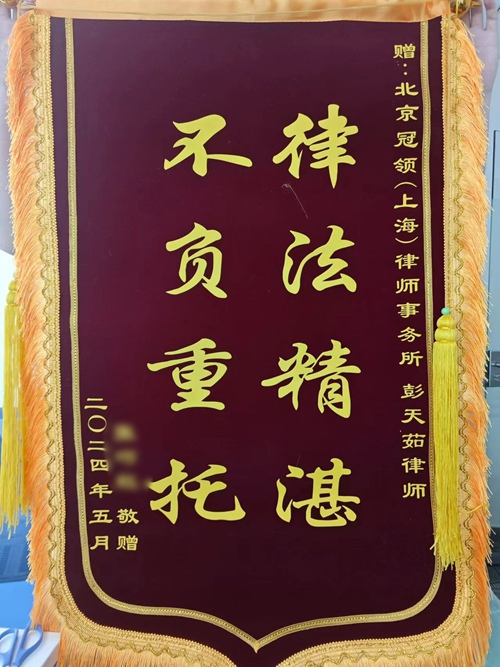 赠：北京冠领（上海）律师事务所 彭天茹律师
律法精湛
不负重托
敬赠
二〇二四年五月